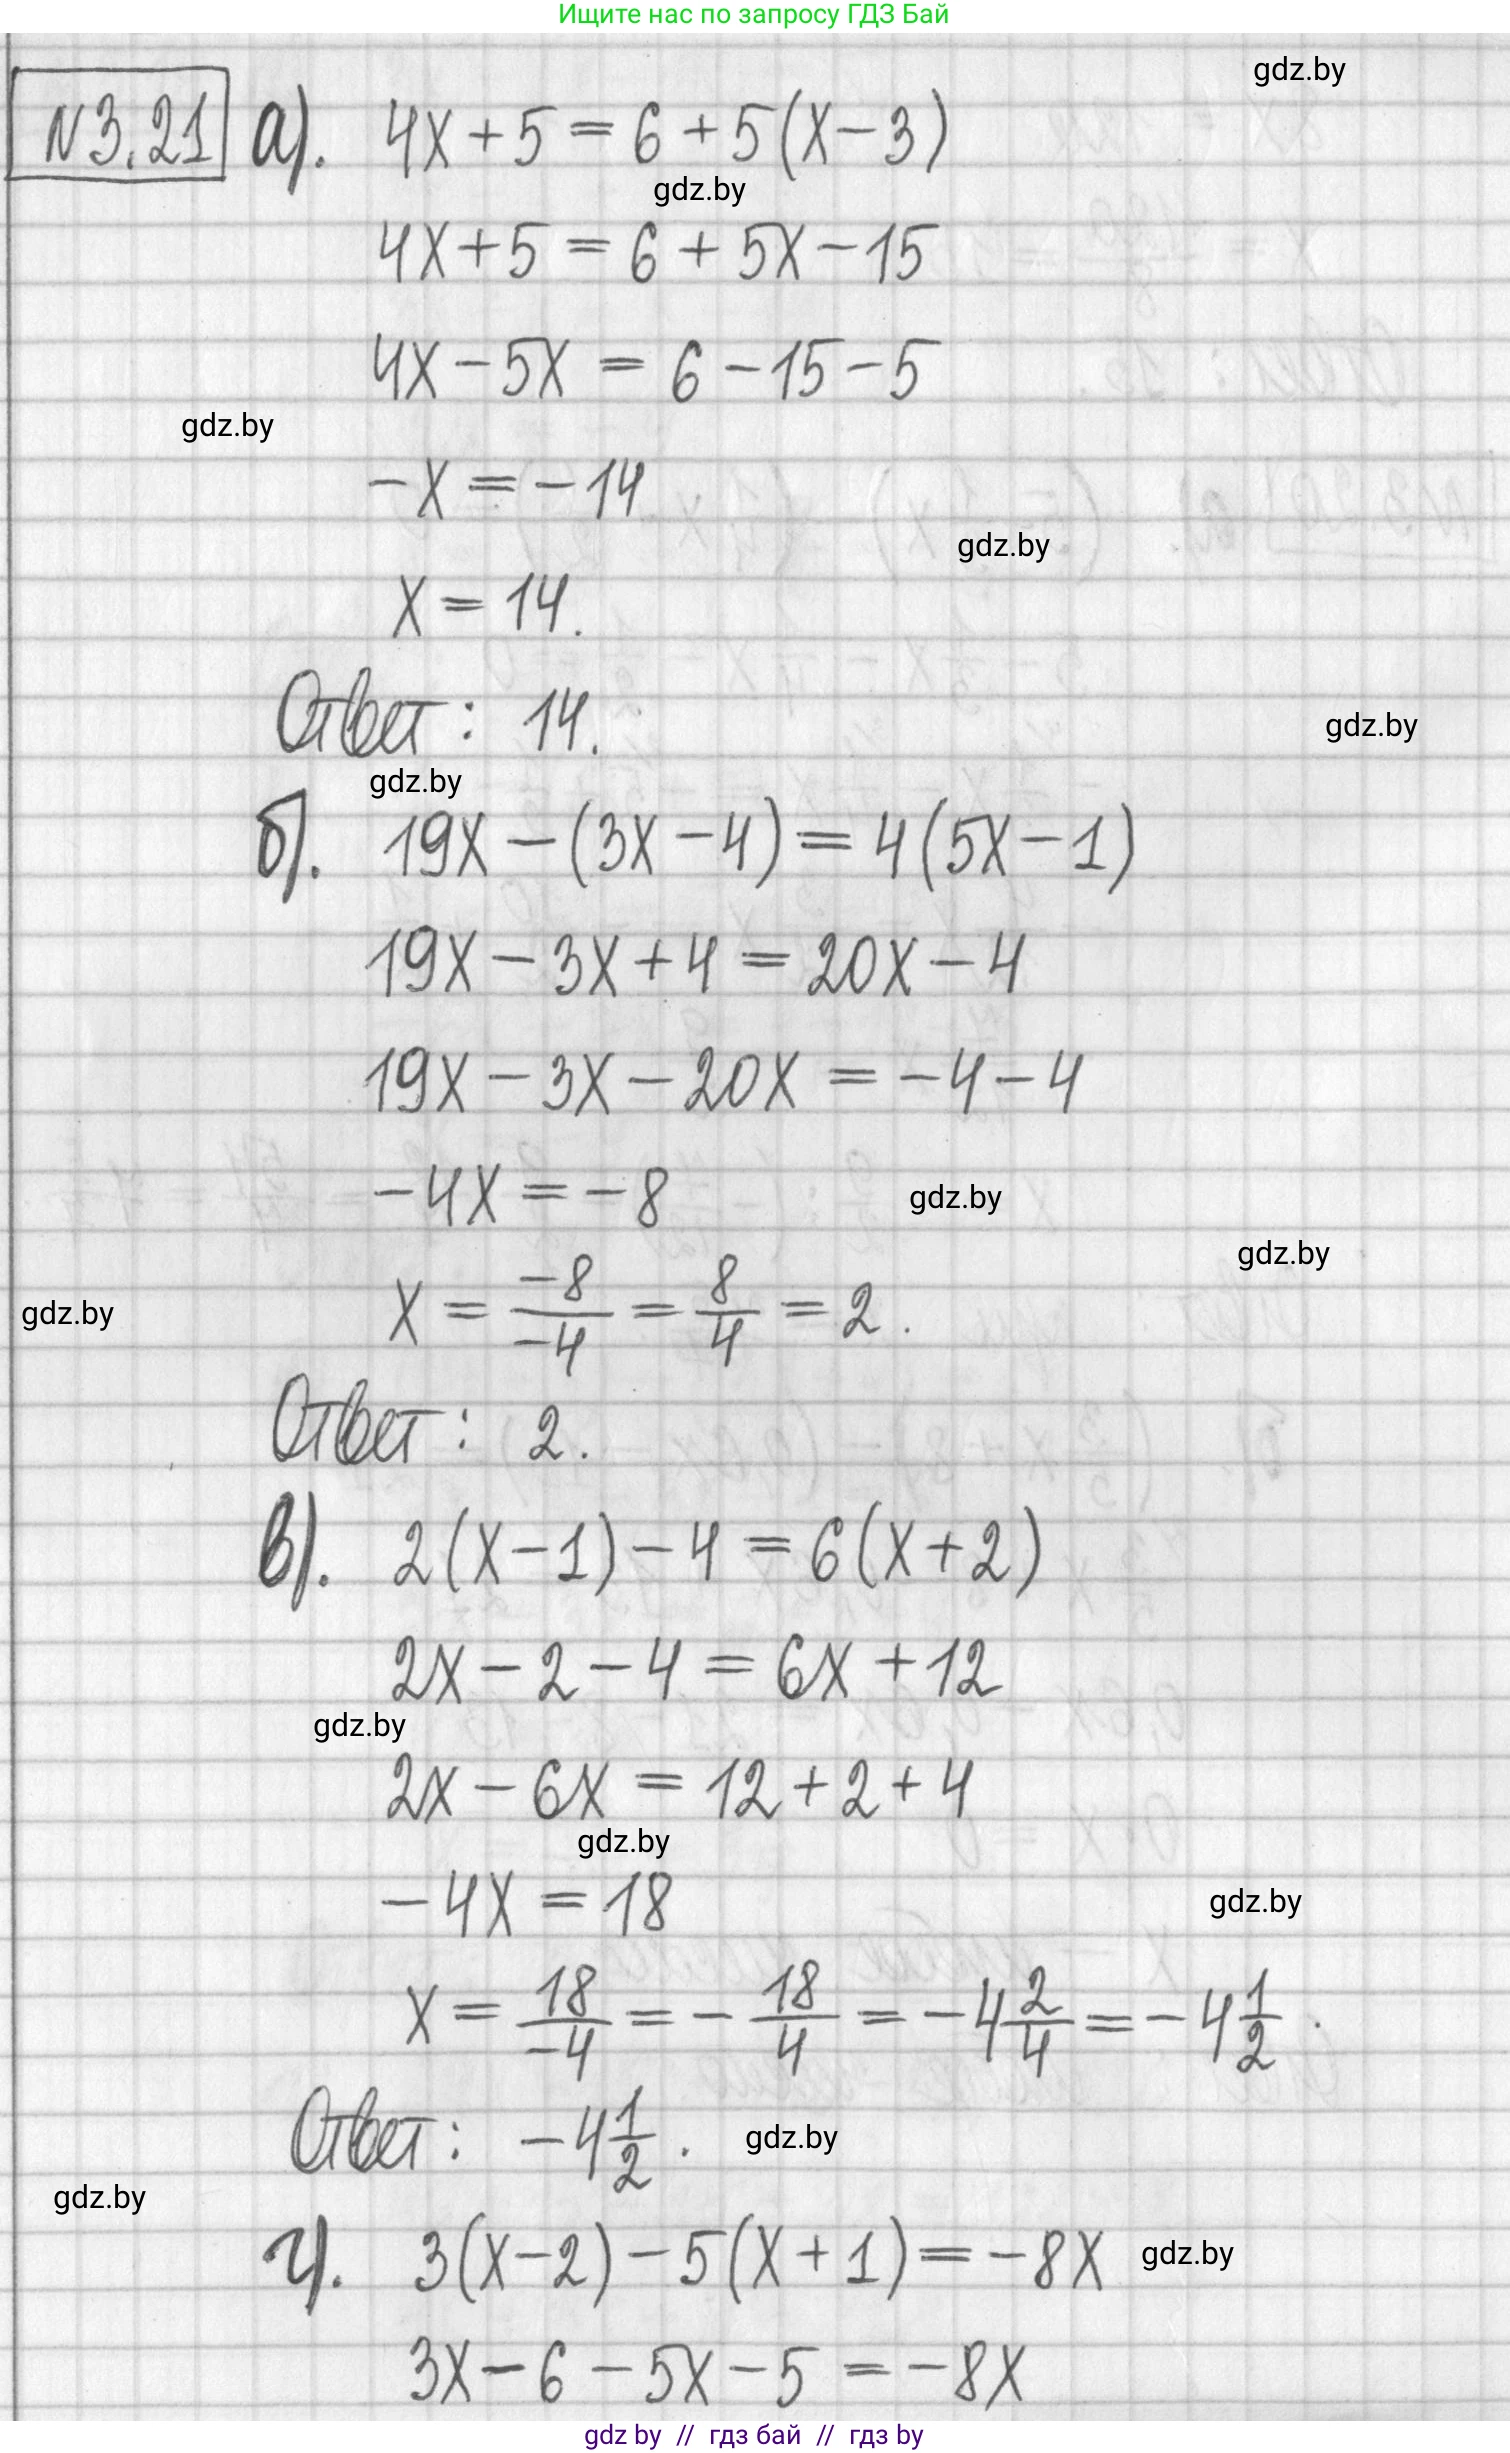 Ищите нас по запросу ГДЗ Бай
gdz.by
№3.21 а). 4x + 5 = 6 + 5(x - 3)
gdz.by
4x + 5 = 6 + 5x - 15
4x - 5x = 6 - 15 - 5
gdz.by
-x = -14
gdz.by
x = 14.
Ответ: 14.
gdz.by
gdz.by
б). 19x - (3x - 4) = 4(5x - 1)
19x - 3x + 4 = 20x - 4
19x - 3x - 20x = -4 - 4
-4x = -8
gdz.by
gdz.by
gdz.by
x = \frac{-8}{-4} = \frac{8}{4} = 2.
Ответ: 2.
в). 2(x - 1) - 4 = 6(x + 2)
2x - 2 - 4 = 6x + 12
gdz.by
2x - 6x = 12 + 2 + 4
gdz.by
-4x = 18
gdz.by
x = \frac{18}{-4} = -\frac{18}{4} = -4\frac{2}{4} = -4\frac{1}{2}.
Ответ: -4\frac{1}{2}.
gdz.by
gdz.by
г). 3(x - 2) - 5(x + 1) = -8x
gdz.by
3x - 6 - 5x - 5 = -8x
gdz by // гдз бай // гдз by